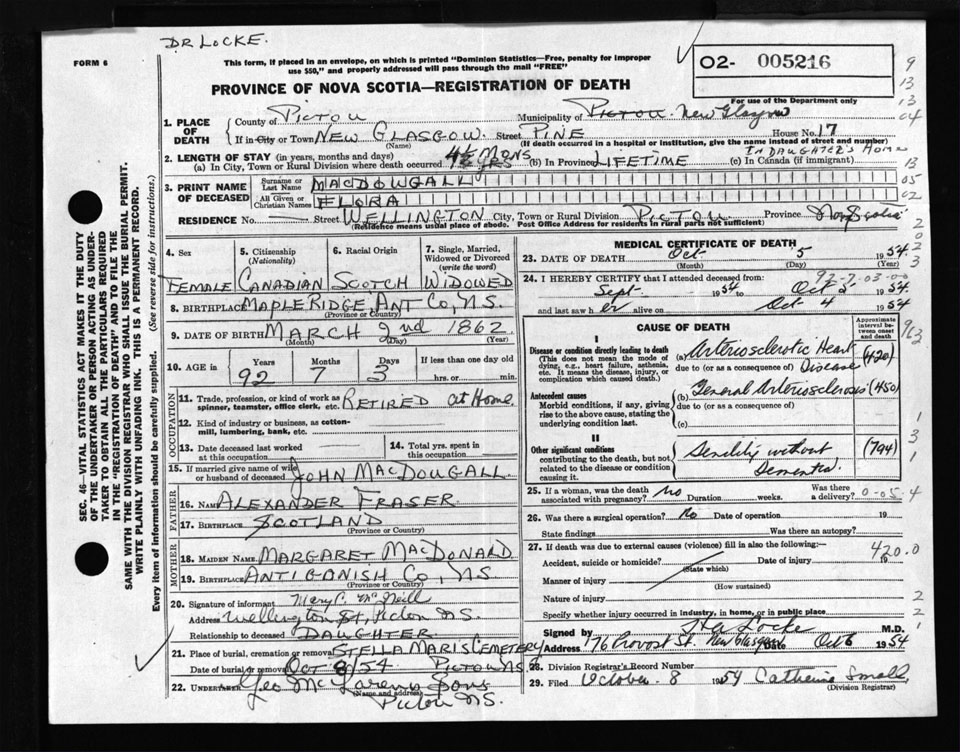 DR LOCKE.
FORM 6
This form, if placed in an envelope, on which is printed "Dominion Statistics—Free, penalty for improper
use $50," and properly addressed will pass through the mail "FREE"
PROVINCE OF NOVA SCOTIA—REGISTRATION OF DEATH
O2- 005216
For use of the Department only
1. PLACE OF DEATH
County of Pictou Municipality of Pictou New Glasgow
If in City or Town New Glasgow. Street Pine House No. 17
(Name) (If death occurred in a hospital or institution, give the name instead of street and number)
In Daughter's Home
2. LENGTH OF STAY (in years, months and days)
(a) In City, Town or Rural Division where death occurred 4½ Mons yrs (b) In Province Lifetime (c) In Canada (if immigrant)
3. PRINT NAME OF DECEASED
Surname or Last Name MacDougall
All Given or Christian Names Flora
RESIDENCE No. — Street Wellington City, Town or Rural Division Pictou Province Nova Scotia
(Residence means usual place of abode. Post Office Address for residents in rural parts not sufficient)
4. Sex
Female
5. Citizenship (Nationality)
Canadian
6. Racial Origin
Scotch
7. Single, Married, Widowed or Divorced (write the word)
Widowed
8. BIRTHPLACE Maple Ridge, Ant Co, N.S.
(Province or Country)
9. DATE OF BIRTH March 2nd 1862
(Month) (Day) (Year)
10. AGE in Years Months Days If less than one day old
92 7 3 hrs. or min.
OCCUPATION
11. Trade, profession, or kind of work as spinner, teamster, office clerk, etc. Retired at Home
12. Kind of industry or business, as cotton-mill, lumbering, bank, etc.
13. Date deceased last worked at this occupation
14. Total yrs. spent in this occupation
15. If married give name of wife or husband of deceased John MacDougall
FATHER
16. Name Alexander Fraser.
17. Birthplace Scotland
(Province or Country)
MOTHER
18. Maiden Name Margaret MacDonald
19. Birthplace Antigonish Co, N.S.
(Province or Country)
20. Signature of informant Mary C. McNeill
Address Wellington St, Pictou N.S.
Relationship to deceased Daughter
21. Place of burial, cremation or removal Stella Maris Cemetery
Date of burial or removal Oct 8/54 Pictou N.S.
22. Undertaker Geo McLaren & Sons
(Name and address)
Pictou N.S.
MEDICAL CERTIFICATE OF DEATH
23. DATE OF DEATH Oct 5 1954.
(Month) (Day) (Year)
92-7-03-00
24. I HEREBY CERTIFY that I attended deceased from:
Sept 1954 to Oct 5 1954.
and last saw h er alive on Oct 4 1954
CAUSE OF DEATH
Approximate interval between onset and death
I
Disease or condition directly leading to death
(This does not mean the mode of dying, e.g., heart failure, asthenia, etc. It means the disease, injury, or complication which caused death.)
(a) Arteriosclerotic Heart Disease (420)
due to (or as a consequence of)
Antecedent causes
Morbid conditions, if any, giving rise to the above cause, stating the underlying condition last.
(b) General Arteriosclerosis (450)
due to (or as a consequence of)
(c)
II
Other significant conditions
contributing to the death, but not related to the disease or condition causing it.
Senility without Dementia. (794)
25. If a woman, was the death associated with pregnancy? No Duration weeks. Was there a delivery? 0-05
26. Was there a surgical operation? No Date of operation 19
State findings Was there an autopsy?
27. If death was due to external causes (violence) fill in also the following:
420.0
Accident, suicide or homicide? Date of injury 19
(State which)
Manner of injury
(How sustained)
Nature of injury
Specify whether injury occurred in industry, in home, or in public place
Signed by Locke M.D.
Address 76 Provost St. New Glasgow Date Oct 6 1954
28. Division Registrar's Record Number
29. Filed October 8 1954 Catherine Small
(Division Registrar)
SEC. 46—VITAL STATISTICS ACT MAKES IT THE DUTY
OF THE UNDERTAKER OR PERSON ACTING AS UNDER-
TAKER TO OBTAIN ALL THE PARTICULARS REQUIRED
IN THE "REGISTRATION OF DEATH" AND TO FILE THE
SAME WITH THE DIVISION REGISTRAR WHO SHALL ISSUE THE BURIAL PERMIT.
WRITE PLAINLY WITH UNFADING INK. THIS IS A PERMANENT RECORD.
Every item of information should be carefully supplied. (See reverse side for instructions.)
9
13
13
04
13
05
02